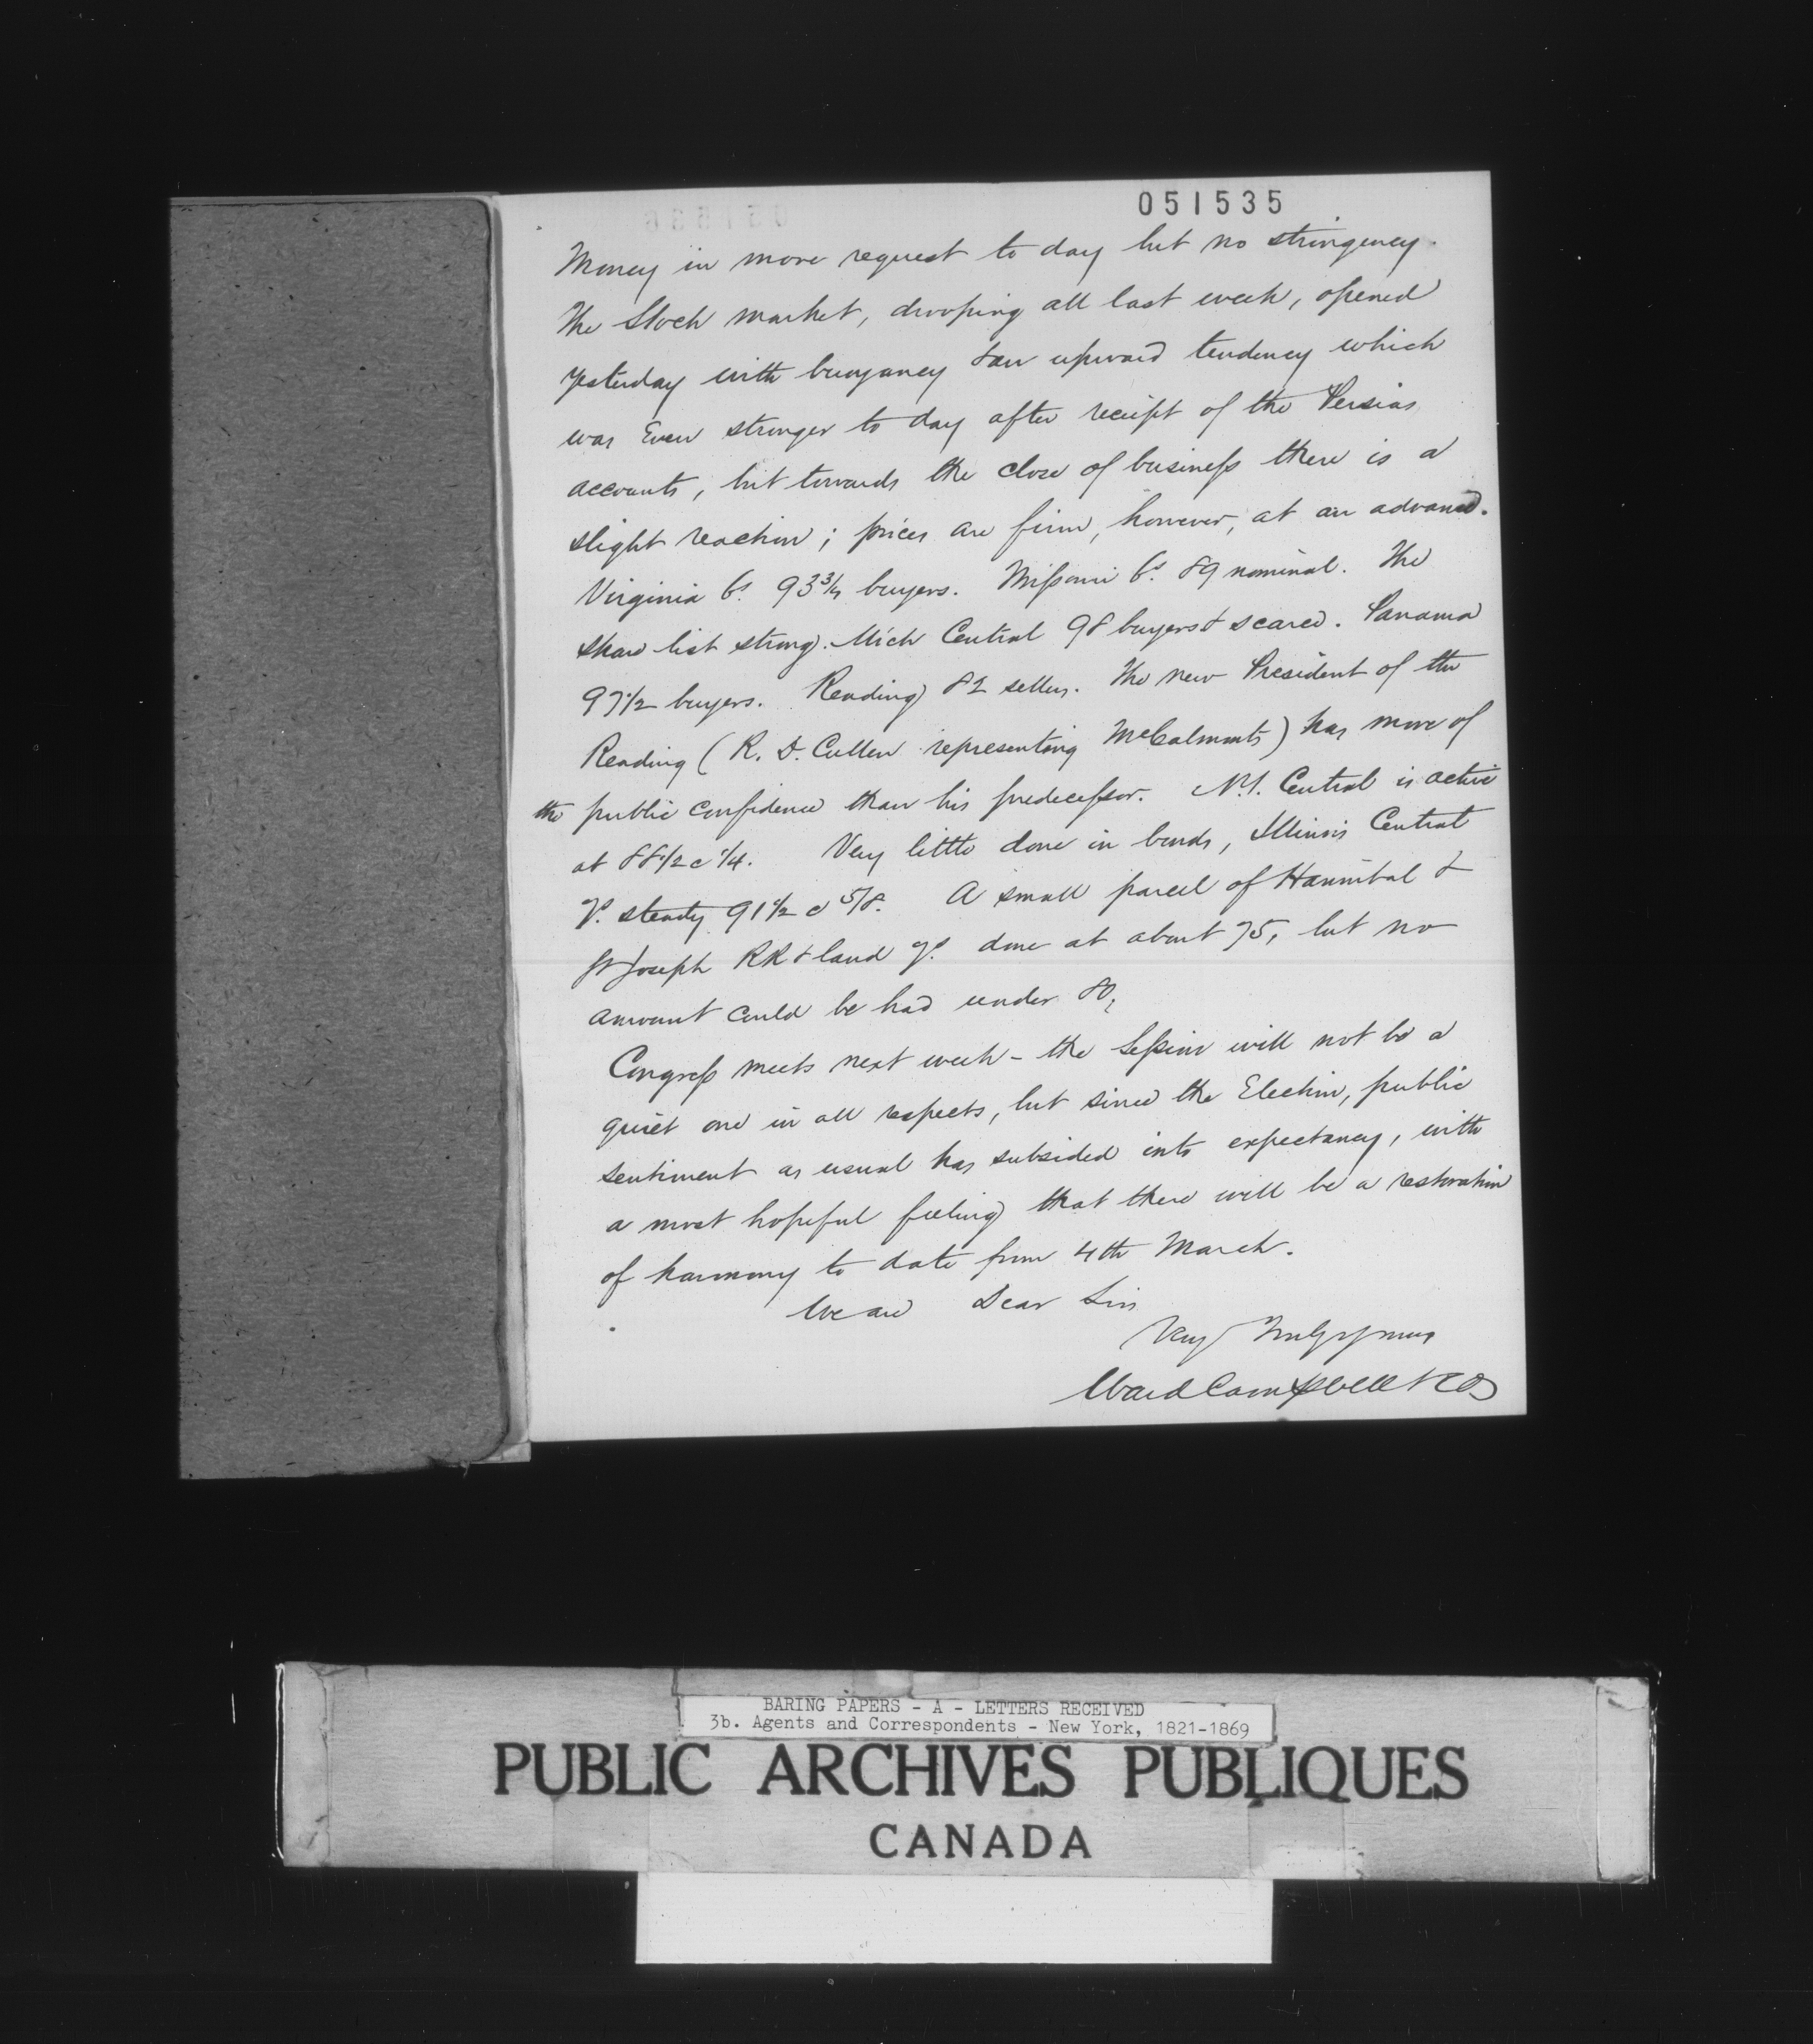 051535
Money in more request to day but no stringency.
The Stock market, drooping all last week, opened
yesterday with buoyancy & an upward tendency which
was Even stronger to day after receipt of the Persias
accounts, but towards the close of business there is a
slight reaction; prices are firm, however, at an advance.
Virginia 6s. 93 3/4 buyers. Missouri 6s. 89 nominal. The
share list strong. Mich Central 98 buyers & scarce. Panama
97 1/2 buyers. Reading 82 sellers. The new President of the
Reading (R. D. Cullen representing McCalmonts) has more of
the public confidence than his predecessor. N.Y. Central is active
at 88 1/2 @ 1/4. Very little done in bonds, Illinois Central
7s. steady 91 1/2 @ 5/8. A small parcel of Hannibal &
St Joseph RR & land 7s. done at about 75, but no
amount could be had under 80.
Congress meets next week - the Session will not be a
quiet one in all respects, but since the Election, public
sentiment as usual has subsided into expectancy, with
a most hopeful feeling that there will be a restoration
of harmony to date from 4th March.
We are Dear Sirs
Very
Ward Campbell & Co
BARING PAPERS - A - LETTERS RECEIVED
3b. Agents and Correspondents - New York, 1821-1869
PUBLIC ARCHIVES PUBLIQUES
CANADA